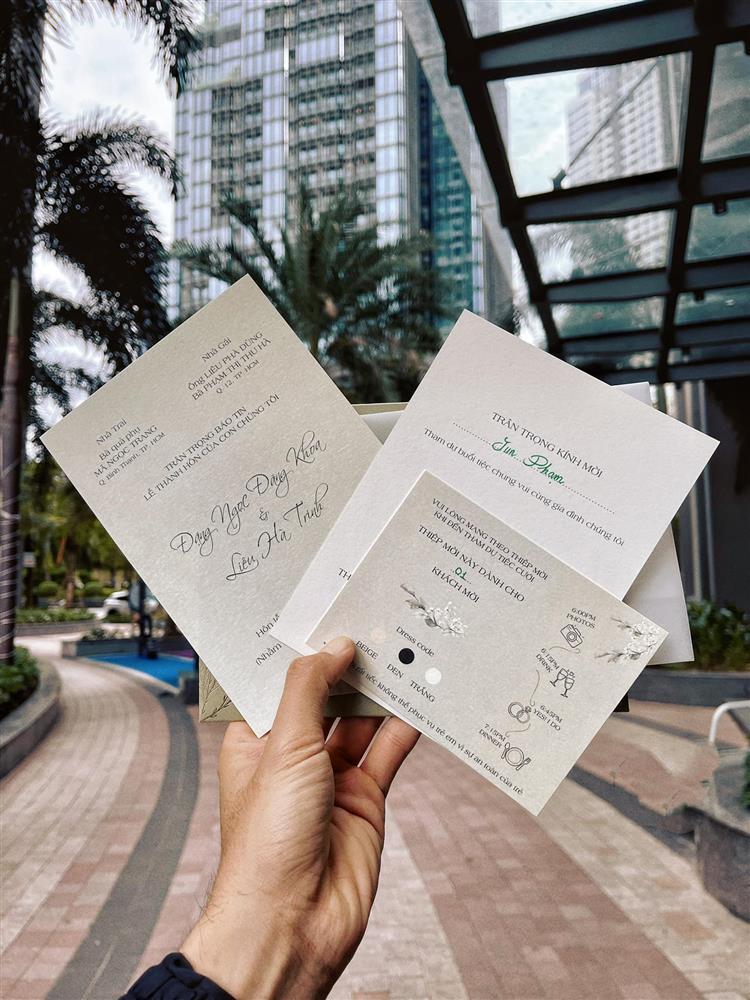 Nhà Gái
Ông LIÊU PHA DŨNG
Bà PHẠM THỊ THU HÀ
Q. 12, TP. HCM
Nhà Trai
Bà quả phụ
MÃ NGỌC TRANG
Q. Bình Thạnh, TP. HCM
TRÂN TRỌNG BÁO TIN
LỄ THÀNH HÔN CỦA CON CHÚNG TÔI
Đặng Ngọc Đăng Khoa
&
Liêu Hà Trinh
(Nhằm
TRÂN TRỌNG KÍNH MỜI
Jun Phạm
Tham dự buổi tiệc chung vui cùng gia đình chúng tôi
VUI LÒNG MANG THEO THIỆP MỜI
KHI ĐẾN THAM DỰ TIỆC CƯỚI
THIỆP MỜI NÀY DÀNH CHO
01
KHÁCH MỜI
Dress code
BEIGE ĐEN TRẮNG
6:00PM
PHOTOS
6:15PM
DRINK
6:45PM
YES! I DO
7:15PM
DINNER
tiệc không thể phục vụ trẻ em vì sự an toàn của trẻ